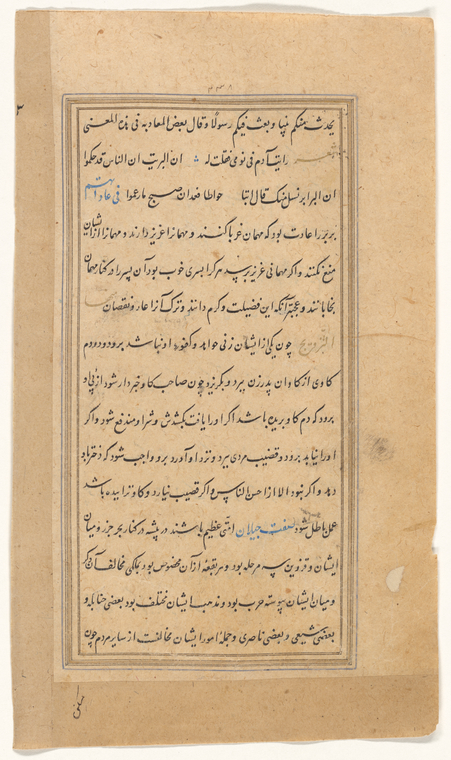 ٢٣٨
یحدث منکم نبیا و بعث فیکم رسولا و قال بعض المغاربه فی هذا المعنی
شعر رایت آدم فی نومی فقلت له ان البریة ان الناس قد حکموا
ان البرابر نسل منک قال انا حوا طالق ان صح ما زعموا فی عاداتهم
بربر را عادت بود که مهمان غربا کنند و مهمانرا عزیز دارند و مهمانرا از ایشان
منع نکنند و اگر مهمانی عزیز برسد هرکرا پسری خوب بود آن پسر را در کنار مهمان
بخابانند و عجبتر آنکه این فضیلت و کرم دانند و ترک آنرا عار و نقصان
التزویج چون یکی از ایشان زنی خواهد و کفو او نباشد برود و دم
کاوی از کاوان پدر زن ببرد و بگریزد چون صاحب کاو خبردار شود از پی او
برود که دم کاو بریده باشد اگر او را یافت بکشدش و شر او مندفع شود و اگر
او را نیابد برود و قضیب مردی ببرد و نزد او آورد برو واجب شود که دختر باو
دهد و اگر نبود الا از احسن الناس و اگر قضیب نیارد و کاو ترا بیده باشد
عمل باطل شود صفت جیلان امتی عظیم باشند در بیشه در کنار بحر خزر و میان
ایشان و قزوین سه مرحله بود و هر بقعه از آن مخصوص بود بملکی مخالف آن دیگر
و میان ایشان پیوسته حرب بود و مذهب ایشان مختلف بود بعضی حنابله و
بعضی شیعی و بعضی ناصری و جمله امور ایشان مخالفست از سایر مردم چون